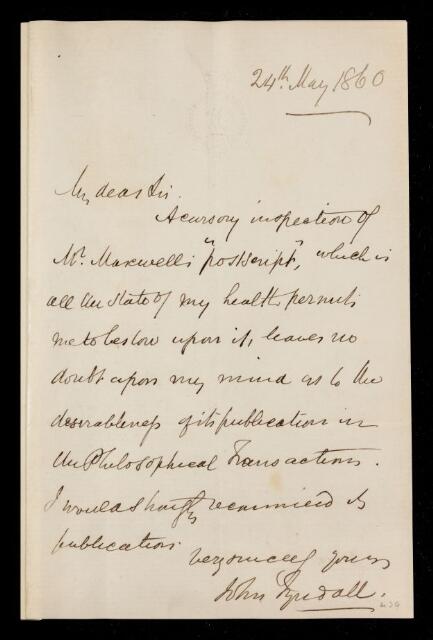 24th May 1860
My dear Sir
A cursory inspection of
Mr. Maxwell's "postscript", which is
all the state of my health permits
me to bestow upon it, leaves no
doubt upon my mind as to the
desirableness of its publication in
the Philosophical Transactions.
I would strongly recommend its
publication.
Very sincerely yours
John Tyndall.